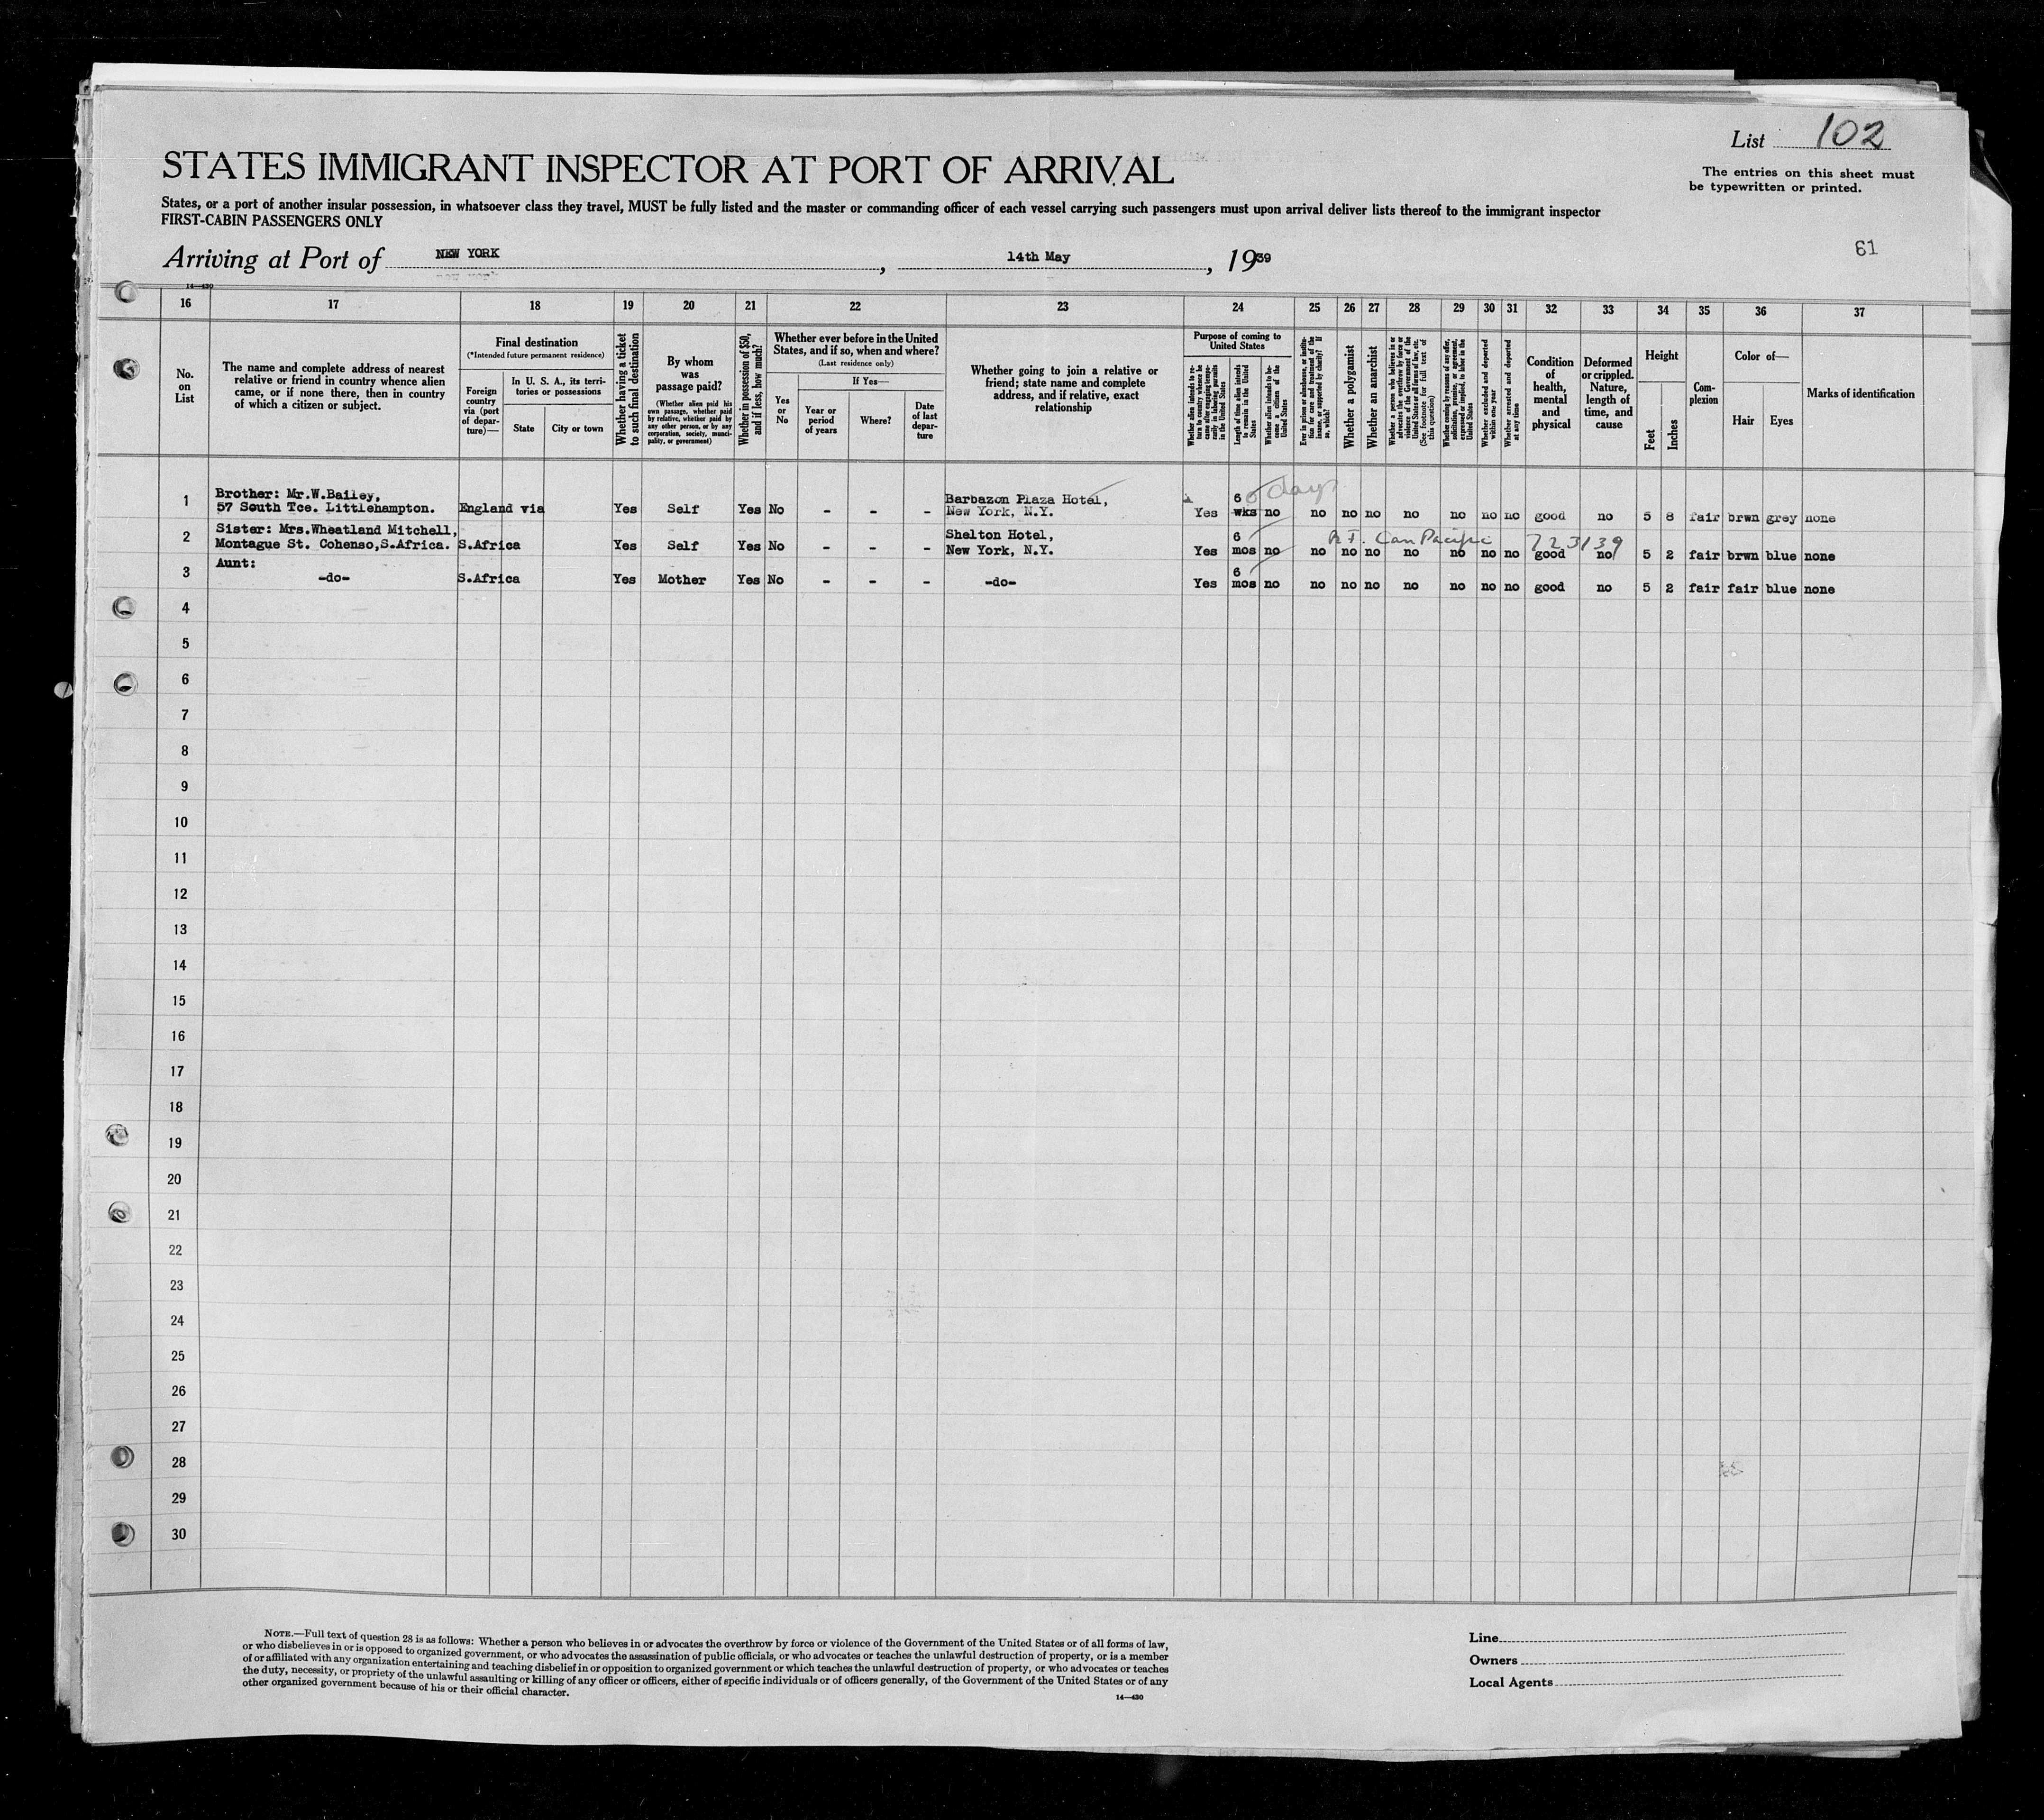 List 102
The entries on this sheet must
be typewritten or printed.
STATES IMMIGRANT INSPECTOR AT PORT OF ARRIVAL
States, or a port of another insular possession, in whatsoever class they travel, MUST be fully listed and the master or commanding officer of each vessel carrying such passengers must upon arrival deliver lists thereof to the immigrant inspector
FIRST-CABIN PASSENGERS ONLY
Arriving at Port of NEW YORK, 14th May, 1939
61
14—430
16 17 18 19 20 21 22 23 24 25 26 27 28 29 30 31 32 33 34 35 36 37
No.
on
List
The name and complete address of nearest
relative or friend in country whence alien
came, or if none there, then in country
of which a citizen or subject.
Final destination
(*Intended future permanent residence)
Foreign
country
via (port
of depar-
ture)—
In U. S. A., its terri-
tories or possessions
State
City or town
Whether having a ticket
to such final destination
By whom
was
passage paid?
(Whether alien paid his
own passage, whether paid
by relative, whether paid by
any other person, or by any
corporation, society, munici-
pality, or government)
Whether in possession of $50,
and if less, how much?
Whether ever before in the United
States, and if so, when and where?
(Last residence only)
Yes
or
No
If Yes—
Year or
period
of years
Where?
Date
of last
depar-
ture
Whether going to join a relative or
friend; state name and complete
address, and if relative, exact
relationship
Purpose of coming to
United States
Whether alien intends to re-
turn to country whence he
came after engaging tempo-
rarily in laboring pursuits
in the United States
Length of time alien intends
to remain in the United
States
Whether alien intends to be-
come a citizen of the
United States
Ever in prison or almshouse, or institu-
tion for care and treatment of the
insane, or supported by charity? If
so, which?
Whether a polygamist
Whether an anarchist
Whether a person who believes in or
advocates the overthrow by force or
violence of the Government of the
United States or all forms of law, etc.
(See footnote for full text of
this question)
Whether coming by reasons of any offer,
solicitation, promise, or agreement,
expressed or implied, to labor in the
United States
Whether excluded and deported
within one year
Whether arrested and deported
at any time
Condition
of
health,
mental
and
physical
Deformed
or crippled.
Nature,
length of
time, and
cause
Height
Feet
Inches
Com-
plexion
Color of—
Hair
Eyes
Marks of identification
1 Brother: Mr.W.Bailey,
57 South Tce. Littlehampton. England via Yes Self Yes No - - - Barbazon Plaza Hotel,
New York, N.Y. Yes 6 wks days no no no no no no no no good no 5 8 fair brwn grey none
2 Sister: Mrs.Wheatland Mitchell,
Montague St. Cohenso,S.Africa. S.Africa Yes Self Yes No - - - Shelton Hotel,
New York, N.Y. Yes 6 mos no no no no no no no no good no 5 2 fair brwn blue none
Can Pacific 723139
3 Aunt:
-do- S.Africa Yes Mother Yes No - - - -do- Yes 6 mos no no no no no no no no good no 5 2 fair fair blue none
4
5
6
7
8
9
10
11
12
13
14
15
16
17
18
19
20
21
22
23
24
25
26
27
28
29
30
NOTE.—Full text of question 28 is as follows: Whether a person who believes in or advocates the overthrow by force or violence of the Government of the United States or of all forms of law,
or who disbelieves in or is opposed to organized government, or who advocates the assassination of public officials, or who advocates or teaches the unlawful destruction of property, or is a member
of or affiliated with any organization entertaining and teaching disbelief in or opposition to organized government or which teaches the unlawful destruction of property, or who advocates or teaches
the duty, necessity, or propriety of the unlawful assaulting or killing of any officer or officers, either of specific individuals or of officers generally, of the Government of the United States or of any
other organized government because of his or their official character.
14—430
Line
Owners
Local Agents